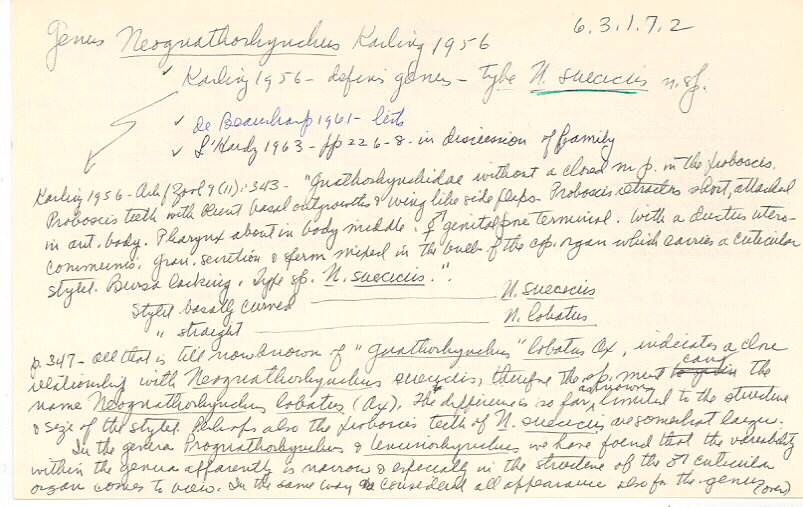 6.3.1.7.2
Genus Neognathorhynchus Karling 1956
✓ Karling 1956 - defins genus - type N. suecicus n. sp.
✓ de Beauchamp 1961 - lists
✓ L'Hardy 1963 - pp 226-8. in discussion of family
Karling 1956 - Ark f Zool 9 (11): 343 - "Gnathorhynchidae without a closed m.p. in the proboscis.
Proboscis teeth with blunt basal outgrowths & wing like side flaps. Proboscis retractors short, attached
in ant. body. Pharynx about in body middle. ⚥ genital pore terminal. With a ductus utero-
communis. Gran. secretion & sperm mixed in the bulb of the cop. organ which carries a cuticular
stylet. Bursa lacking. Type sp. N. suecicus.".
Stylet basally curved ——— N. suecicus
" straight ——— N. lobatus
p. 347 - All that is till now known of "Gnathorhynchus" lobatus Ax, indicates a close
relationship with Neognathorhynchus suecicus, therefore the sp. must carry the
name Neognathorhynchus lobatus (Ax). The difference is so far as known limited to the structure
& size of the stylet. Perhaps also the proboscis teeth of N. suecicus are somewhat larger.
In the genera Prognathorhynchus & Uncinorhynchus we have found that the variability
within the genera apparently is narrow & especially in the structure of the ♂ cuticular
organ comes to view. In the same way considered all appearance also for the genus
(over)